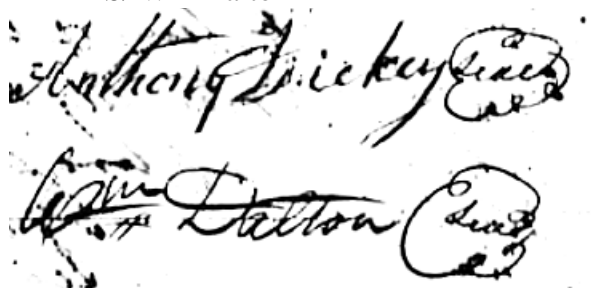 Anthony Dickey Seal
Wm Dalton Seal